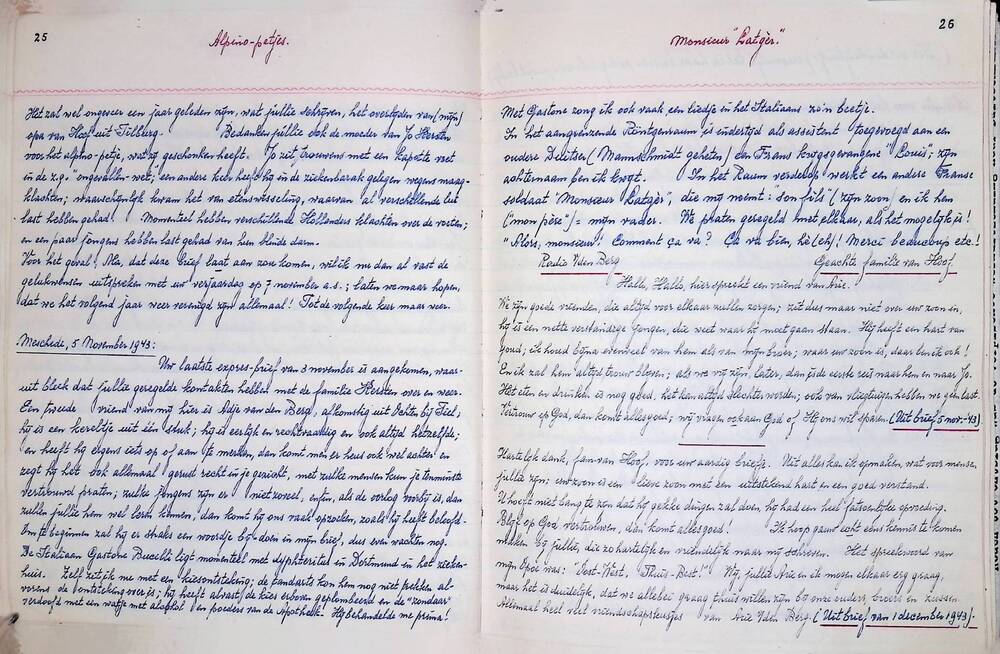 25
Alpino-petjes.
Het zal wel ongeveer een jaar geleden zijn, wat jullie schrijven, het overlijden van (mijn)
opa van Hoof uit Tilburg. Bedanken jullie ook de moeder van Jo Kersten
voor het alpino-petje, wat zij geschonken heeft. Jo zit, trouwens met een kapotte voet
in de z.g. "ongevallen-wet; een andere keer heeft hij in de ziekenbarak gelegen wegens maag-
klachten; waarschijnlijk kwam het van etenswisseling, waarvan al verschillende
last hebben gehad. Momenteel hebben verschillende Hollanders klachten over de voeten;
en een paar jongens hebben last gehad van hun blinde darm.
Voor het geval! Ma, dat deze brief laat aan zou komen, wil ik nu dan al vast de
gelukwensen uitspreken met uw verjaardag op 7 november a.s.; laten we maar hopen,
dat we het volgend jaar weer verenigd zijn allemaal! Tot de volgende keer maar weer.
Meschede, 5 November 1943:
Uw laatste expres-brief van 3 november is aangekomen, waar-
uit bleek dat jullie geregelde kontakten hebben met de familie Kersten over en weer.
Een tweede vriend van mij hier is Adje van den Berg, afkomstig uit Ochten bij Tiel;
hij is een kereltje uit één stuk; hij is eerlijk en rechtvaardig en ook altijd hetzelfde;
en heeft hij ergens iets op of aan te merken, dan komt men er heus ook wel achter en
zegt hij het ook allemaal gerust recht in je gezicht, met zulke mensen kun je tenminste
vertrouwd praten; zulke jongens zijn er niet zoveel, enfin, als de oorlog voorbij is, dan
zullen jullie hem wel leren kennen, dan komt hij ons vaak opzoeken, zoals hij heeft beloofd.
Om te beginnen zal hij er straks een woordje bij doen in mijn brief, dus even wachten nog.
De Italiaan Gastone Bucelli ligt momenteel met dyphteritus in Dortmund in het zieken-
huis. Zelf zit ik me met een kiesontsteking; de tandarts kan hem nog niet trekken al-
vorens de ontsteking over is; hij heeft alvast de kies erboven geplombeerd en de "zondaar"
verdooft met een watje met alcohol en poeders van de Apotheek. Hij behandelde me prima!
26
Monsieur "Latgèr."
Met Gastone zong ik ook vaak een liedje in het Italiaans zo'n beetje.
In het aangrenzende Röntgenraum is indertijd als assistent toegevoegd aan een
oudere Duitser (Mannschmidt geheten) een Frans krijgsgevangene "Louis"; zijn
achternaam ben ik kwijt. In het Raum verderop werkt een andere Franse
soldaat "Monsieur Latgèr", die mij noemt: "son fils" (zijn zoon) en ik hem
("mon père") = mijn vader. We praten geregeld met elkaar, als het mogelijk is!
"Alors, monsieur! Comment ça va? Ça va bien, hè (eh)! Merci beaucoup etc!
Radio V.den Berg Geachte familie van Hoof.
Hallo, Hallo, hier spreekt een vriend van Arie.
We zijn goede vrienden, die altijd voor elkaar zullen zorgen; zit dus maar niet over uw zoon in,
hij is een nette verstandige jongen, die weet waar hij moet gaan staan. Hij heeft een hart van
goud; ik houd bijna evenveel van hem als van mijn broer; waar uw zoon is, daar ben ik ook!
En ik zal hem altijd trouw blijven; als we vrij zijn later, dan is de eerste reis naar hem en naar Jo.
Het eten en drinken is nog goed, het kan altijd slechter worden; ook van vliegtuigen hebben we geen last.
Vertrouw op God, dan komt alles goed; wij vragen ook aan God of Hij ons wil sparen. (Uit brief 5 nov.-'43)
Hartelijk dank, fam. van Hoof, voor uw aardig briefje. Uit alles kan ik opmaken, wat voor mensen
jullie zijn; uw zoon is een lieve zoon met een uitstekend hart en een goed verstand.
U hoeft niet bang te zijn dat hij gekke dingen zal doen, hij had een heel fatsoenlijke opvoeding.
Blijf op God vertrouwen, dan komt alles goed! Ik hoop gauw echt eens kennis te komen
maken bij jullie, die zo hartelijk en vriendelijk naar mij schreven. Het spreekwoord van
mijn Opoe was: "Oost-West, Thuis-Best!" Nu, jullie Arie en ik mogen elkaar erg graag,
maar het is duidelijk, dat we allebei graag thuis willen zijn bij onze ouders, broers en zussen.
Allemaal heel veel vriendschapskusjes van Arie V.den Berg. (Uit brief van 1 december 1943).